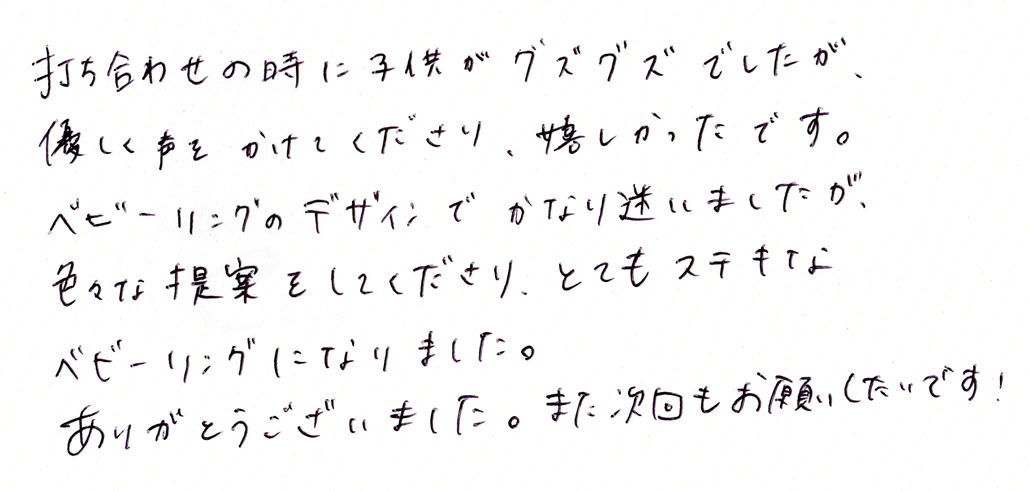 打ち合わせの時に子供がグズグズでしたが、
優しく声をかけてくださり、嬉しかったです。
ベビーリングのデザインでかなり迷いましたが、
色々な提案をしてくださり、とてもステキな
ベビーリングになりました。
ありがとうございました。また次回もお願いしたいです！